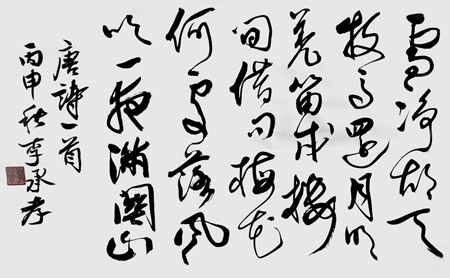 雪净胡天
牧馬還月明
羌笛戍樓
間借問梅花
何處落風
吹一夜滿關山
唐詩一首
丙申秋李承孝